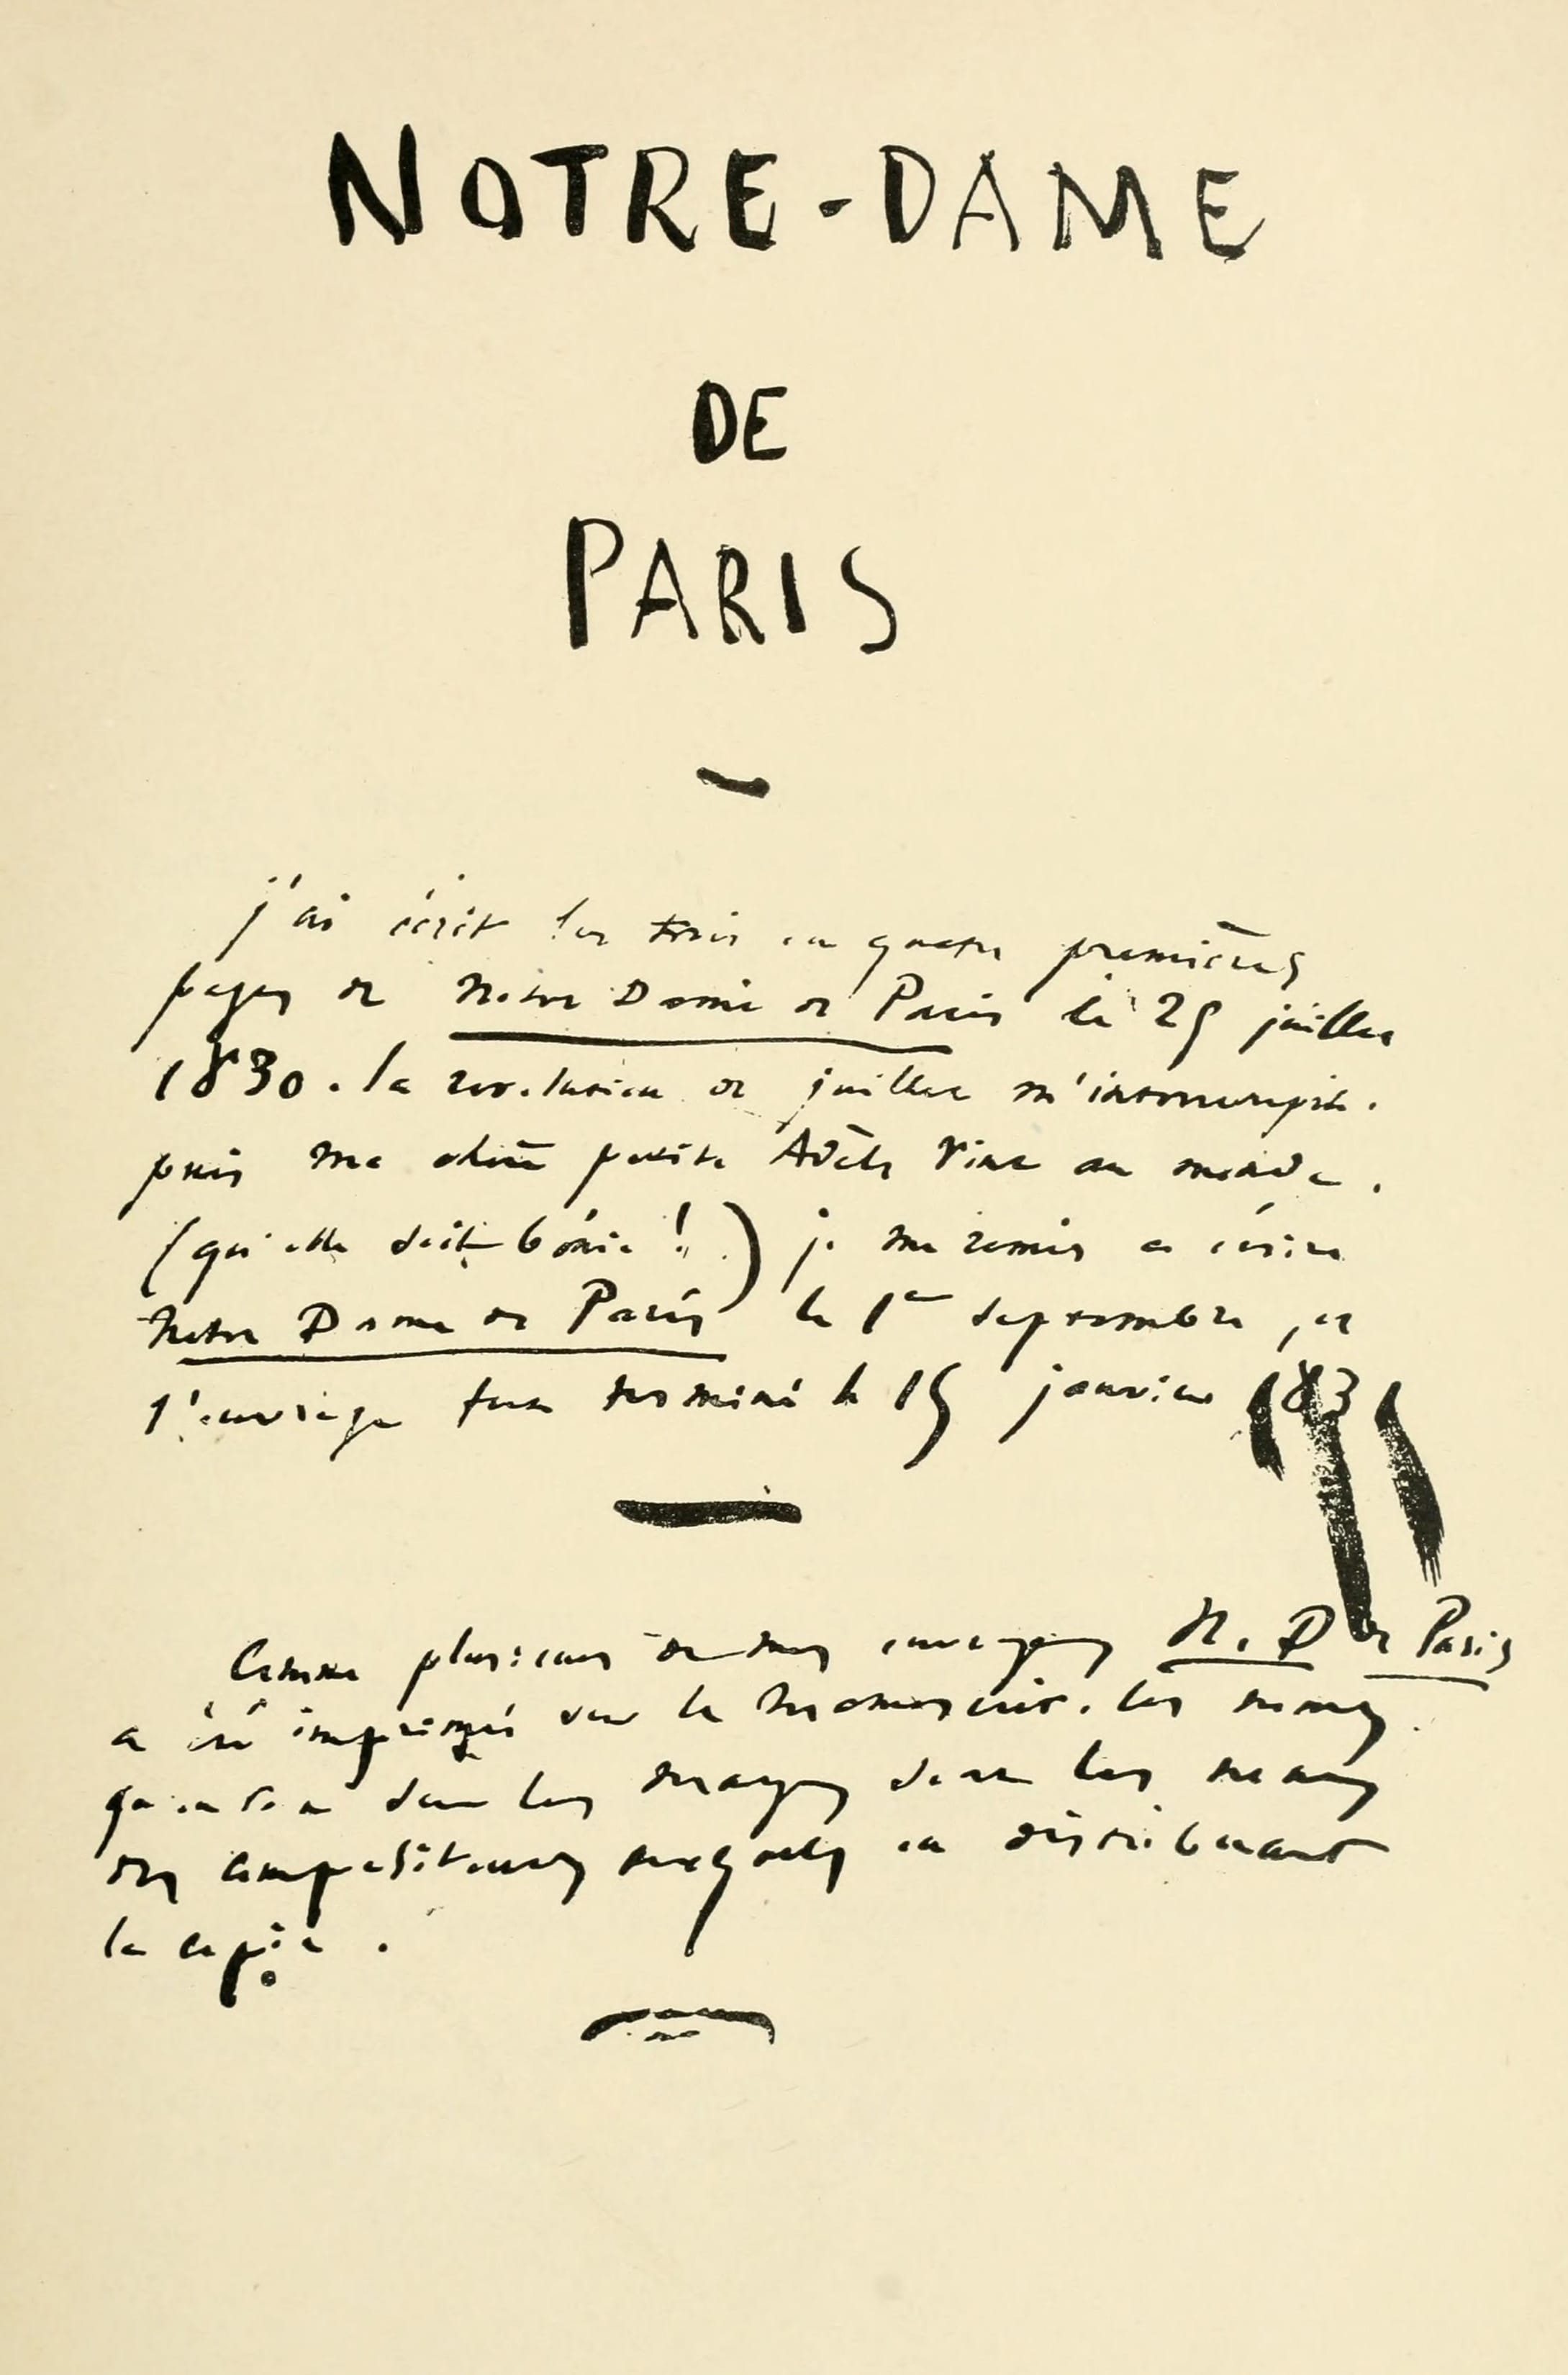 NOTRE-DAME
DE
PARIS
j'ai écrit les trois ou quatre premières
pages de Notre Dame de Paris le 25 juillet
1830. la révolution de juillet m'interrompit.
puis ma chère petite Adèle vint au monde.
(qu'elle soit bénie!) je me remis à écrire
Notre Dame de Paris le 1er septembre, et
l'ouvrage fut terminé le 15 janvier 1831
Comme plusieurs de mes ouvrages N. D de Paris
a été imprimé sur le manuscrit. les noms
qu'on voit sur les marges sont les noms
des compositeurs auxquels on distribuait
la copie.